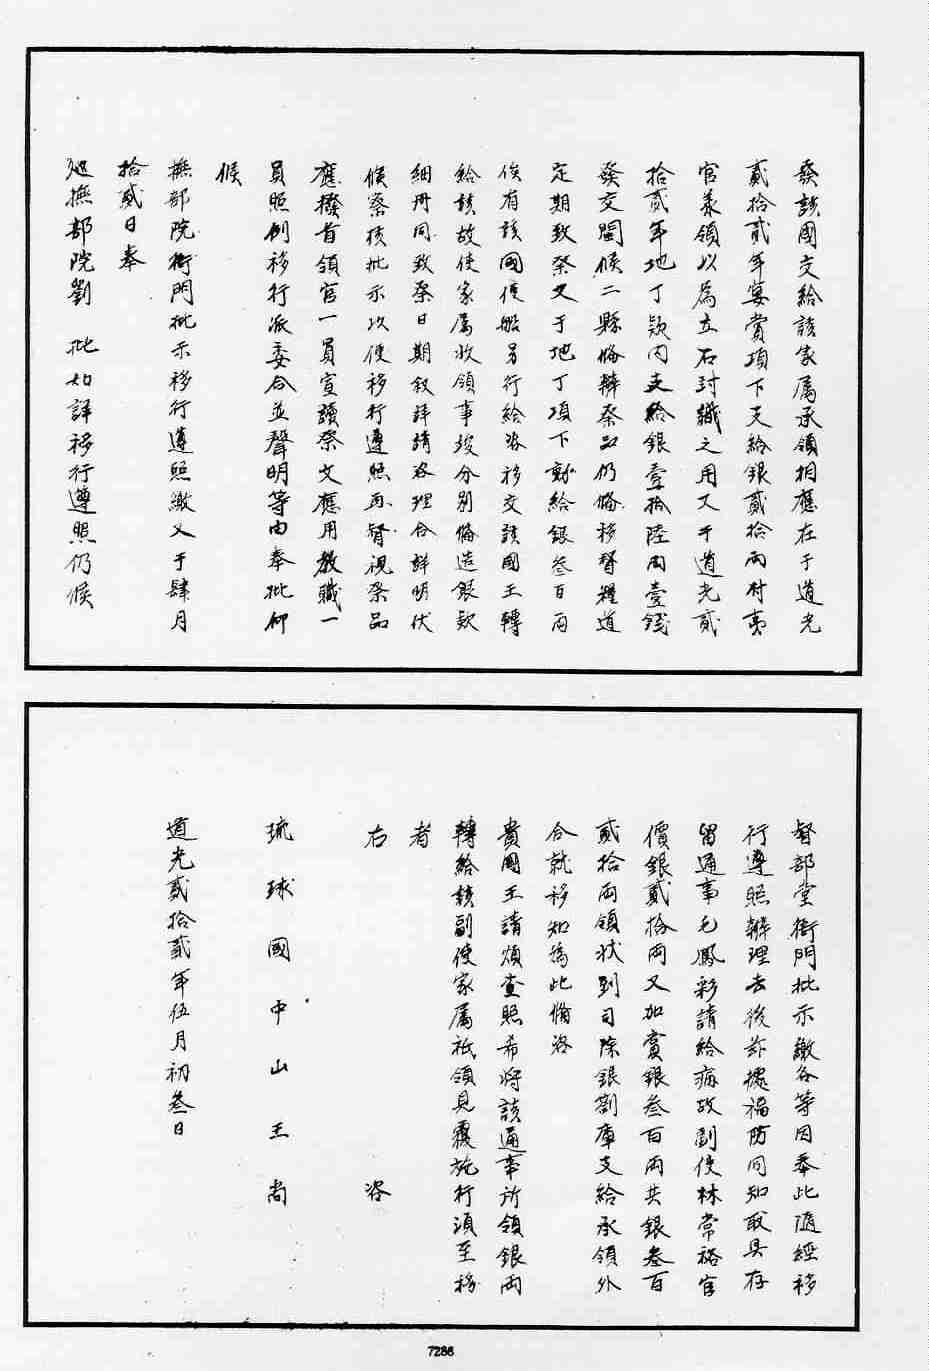 發該國交給該家屬承領相應在于道光
貳拾貳年宴賞項下支給銀貳拾兩付夷
官義領以為立石封識之用又于道光貳
拾貳年地丁款內支給銀壹拾陸兩壹錢
發交閩候二縣俻辦祭品仍俻移督糧道
定期致祭又于地丁項下動給銀叁百兩
俟有該國使船另行給咨移交該國王轉
給該故使家屬收領事竣分別俻造銀款
細冊同致祭日期叙詳請咨理合詳明伏
候察核批示以便移行遵照再督視祭品
應撥首領官一員宣讀祭文應用教職一
員照例移行派委合並聲明等由奉批仰
候
撫部院衙門批示移行遵照繳又于肆月
拾貳日奉
廵撫部院劉 批如詳移行遵照仍候
督部堂衙門批示繳各等因奉此隨經移
行遵照辦理去後茲據福防同知取具存
留通事毛鳳彩請給病故副使林常裕官
價銀貳拾兩又加賞銀叁百兩共銀叁百
貳拾兩領狀到司除銀劄庫支給承領外
合就移知為此俻咨
貴國王請煩查照希將該通事所領銀兩
轉給該副使家屬祗領見覆施行須至移
者
右 咨
琉球國中山王尚
道光貳拾貳年伍月初叁日
7286